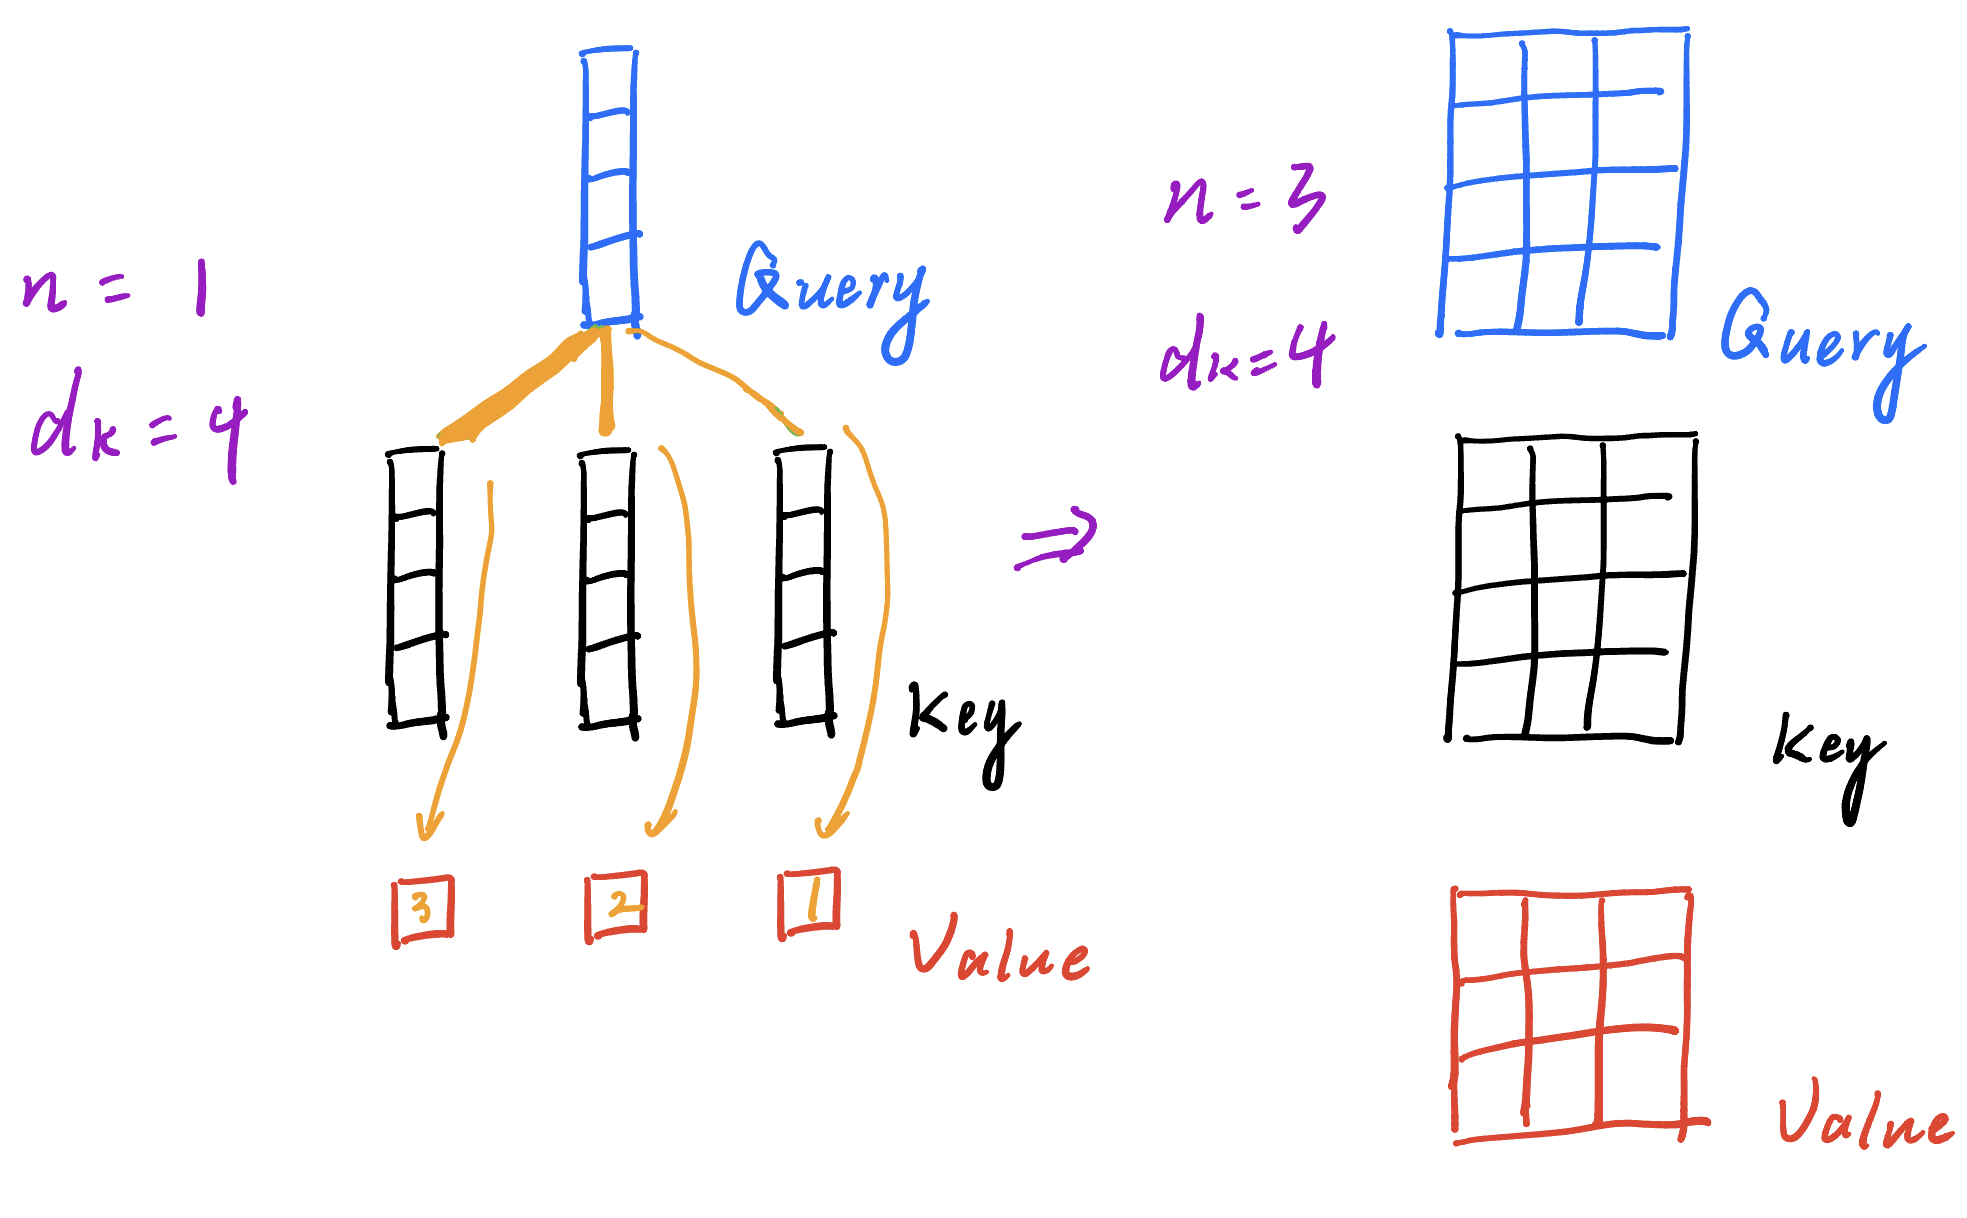 n = 1
dk = 4
Query
Key
3
2
1
Value
⇒
n = 3
dk = 4
Query
Key
Value